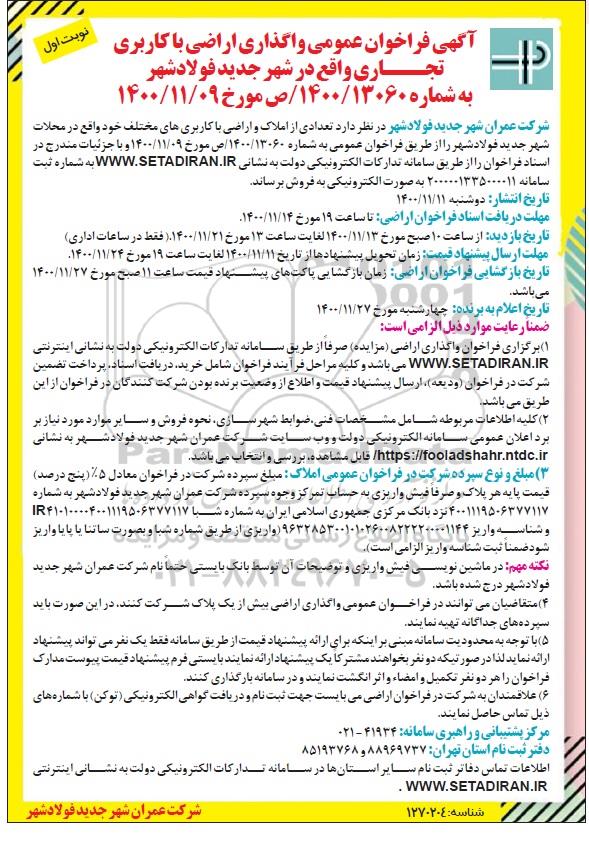 نوبت اول
آگهی فراخوان عمومی واگذاری اراضی با کاربری
تجـــاری واقع در شهر جدید فولادشهر
به شماره ۱۴۰۰/۱۳۰۶۰/ص مورخ ۱۴۰۰/۱۱/۰۹
شرکت عمران شهر جدید فولادشهر در نظر دارد تعدادی از املاک و اراضی با کاربری های مختلف خود واقع در محلات
شهر جدید فولادشهر را از طریق فراخوان عمومی به شماره ۱۴۰۰/۱۳۰۶۰/ص مورخ ۱۴۰۰/۱۱/۰۹ و با جزئیات مندرج در
اسناد فراخوان را از طریق سامانه تدارکات الکترونیکی دولت به نشانی WWW.SETADIRAN.IR به شماره ثبت
سامانه ۲۰۰۰۰۰۱۳۳۵۰۰۰۰۱۱ به صورت الکترونیکی به فروش برساند.
تاریخ انتشار: دوشنبه ۱۴۰۰/۱۱/۱۱
مهلت دریافت اسناد فراخوان اراضی: تا ساعت ۱۹ مورخ ۱۴۰۰/۱۱/۱۴.
تاریخ بازدید: از ساعت ۱۰ صبح مورخ ۱۴۰۰/۱۱/۱۳ لغایت ساعت ۱۳ مورخ ۱۴۰۰/۱۱/۲۱.( فقط در ساعات اداری)
مهلت ارسال پیشنهاد قیمت: زمان تحویل پیشنهادها از تاریخ ۱۴۰۰/۱۱/۱۱ لغایت ساعت ۱۹ مورخ ۱۴۰۰/۱۱/۲۴.
تاریخ بازگشایی فراخوان اراضی: زمان بازگشایی پاکت‌های پیشـنهاد قیمت ساعت ۱۱ صبح مورخ ۱۴۰۰/۱۱/۲۷
می‌باشد.
تاریخ اعلام به برنده: چهارشنبه مورخ ۱۴۰۰/۱۱/۲۷
ضمنا رعایت موارد ذیل الزامی است:
۱)برگزاری فراخوان واگذاری اراضی (مزایده) صرفاً از طریق سـامانه تدارکات الکترونیکی دولت به نشانی اینترنتی
WWW.SETADIRAN.IR می باشد و کلیه مراحل فرآیند فراخوان شامل خرید، دریافت اسناد، پرداخت تضمین
شرکت در فراخوان (ودیعه)، ارسال پیشنهاد قیمت و اطلاع از وضعیت برنده بودن شرکت کنندگان در فراخوان از این
طریق می باشد.
۲)کلیه اطلاعات مربوطه شـامل مشـخصات فنی،ضوابط شهرسازی، نحوه فروش و سـایر موارد مورد نیاز بر
برد اعلان عمومی سـامانه الکترونیکی دولت و وب سـایت شـرکت عمران شهر جدید فولادشـهر به نشانی
https://fooladshahr.ntdc.ir/ قابل مشاهده، بررسی و انتخاب می باشد.
۳)مبلغ و نوع سپرده شرکت در فراخوان عمومی املاک: مبلغ سپرده شرکت در فراخوان معادل ۵٪ (پنج درصد)
قیمت پایه هر پلاک و صرفا فیش واریزی به حساب تمرکز وجوه سپرده شرکت عمران شهر جدید فولادشهر به شماره
۴۰۰۱۱۱۹۵۰۶۳۷۷۱۱۷ نزد بانک مرکزی جمهوری اسلامی ایران به شماره شـبا
و شناسـه واریز (واریزی از طریق شماره شبا و بصورت ساتنا یا پایا واریز
شود ضمناً ثبت شناسه واریز الزامی است).
نکته مهم: در ماشین نویسـی فیش واریزی و توضیحات آن توسط بانک بایستی حتماً نام شرکت عمران شهر جدید
فولادشهر درج شده باشد.
۴)متقاضیان می توانند در فراخـوان عمومی واگذاری اراضی بیش از یک پلاک شـرکت کنند، در این صورت باید
سپرده‌های جداگانه تهیه نمایند.
۵)با توجه به محدودیت سامانه مبنی بر اینکه برای ارائه پیشنهاد قیمت از طریق سامانه فقط یک نفر می تواند پیشنهاد
ارائه نماید لذا در صورتیکه دو نفر بخواهند مشترکاً یک پیشنهاد ارائه نمایند بایستی فرم پیشنهاد قیمت پیوست مدارک
فراخوان را هر دو نفر تکمیل و امضاء و اثر انگشت نمایند و در سامانه بارگذاری کنند.
۶) علاقمندان به شرکت در فراخوان اراضی می بایست جهت ثبت نام و دریافت گواهی الکترونیکی (توکن) با شماره‌های
ذیل تماس حاصل نمایند.
مرکز پشتیبانی و راهبری سامانه: ۴۱۹۳۴-۰۲۱
دفتر ثبت نام استان تهران: ۸۸۹۶۹۷۳۷ و ۸۵۱۹۳۷۶۸
اطلاعات تماس دفاتر ثبت نام سـایر اسـتان‌ها در سـامانه تـدارکات الکترونیکی دولت به نشـانی اینترنتی
WWW.SETADIRAN.IR .
شناسه: ۱۲۷۰۲۰۴
شرکت عمران شهر جدید فولادشهر